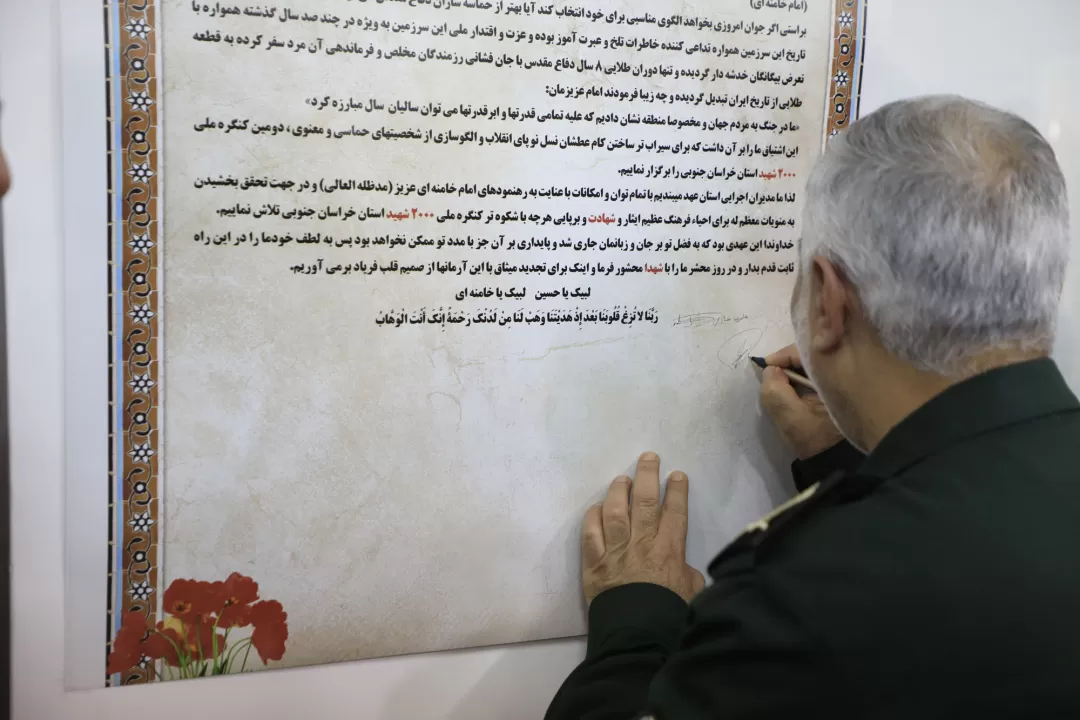 (امام خامنه ای)
براستی اگر جوان امروزی بخواهد الگوی مناسبی برای خود انتخاب کند آیا بهتر از حماسه سازان دفاع
تاریخ این سرزمین همواره تداعی کننده خاطرات تلخ و عبرت آموز بوده و عزت و اقتدار ملی این سرزمین به ویژه در چند صد سال گذشته همواره با
تعرض بیگانگان خدشه دار گردیده و تنها دوران طلایی ۸ سال دفاع مقدس با جان فشانی رزمندگان مخلص و فرماندهی آن مرد سفر کرده به قطعه
طلایی از تاریخ ایران تبدیل گردیده و چه زیبا فرمودند امام عزیزمان:
«ما در جنگ به مردم جهان و مخصوصا منطقه نشان دادیم که علیه تمامی قدرتها و ابرقدرتها می توان سالیان سال مبارزه کرد»
این اشتیاق ما را بر آن داشت که برای سیراب تر ساختن کام عطشان نسل نو پای انقلاب و الگوسازی از شخصیتهای حماسی و معنوی، دومین کنگره ملی
۲۰۰۰ شهید استان خراسان جنوبی را برگزار نماییم.
لذا ما مدیران اجرایی استان عهد میبندیم با تمام توان و امکانات با عنایت به رهنمودهای امام خامنه ای عزیز (مدظله العالی) و در جهت تحقق بخشیدن
به منویات معظم له برای احیاء فرهنگ عظیم ایثار و شهادت و برپایی هرچه با شکوه تر کنگره ملی ۲۰۰۰ شهید استان خراسان جنوبی تلاش نماییم.
خداوندا این عهدی بود که به فضل تو بر جان و زبانمان جاری شد و پایداری بر آن جز با مدد تو ممکن نخواهد بود پس به لطف خود ما را در این راه
ثابت قدم بدار و در روز محشر ما را با شهدا محشور فرما و اینک برای تجدید میثاق با این آرمانها از صمیم قلب فریاد برمی آوریم.
لبیک یا حسین لبیک یا خامنه ای
رَبَّنَا لَا تُزِغْ قُلُوبَنَا بَعْدَ إِذْ هَدَيْتَنَا وَهَبْ لَنَا مِنْ لَدُنْكَ رَحْمَةً إِنَّكَ أَنْتَ الْوَهَّابُ